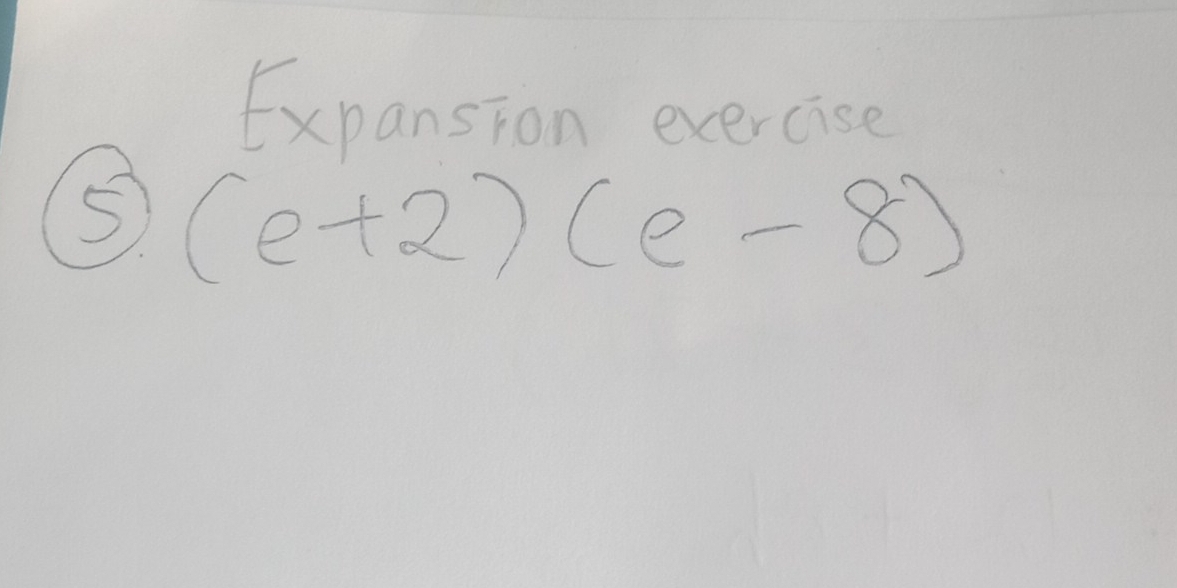 Expansion exercise
⑤. (e+2)(e-8)